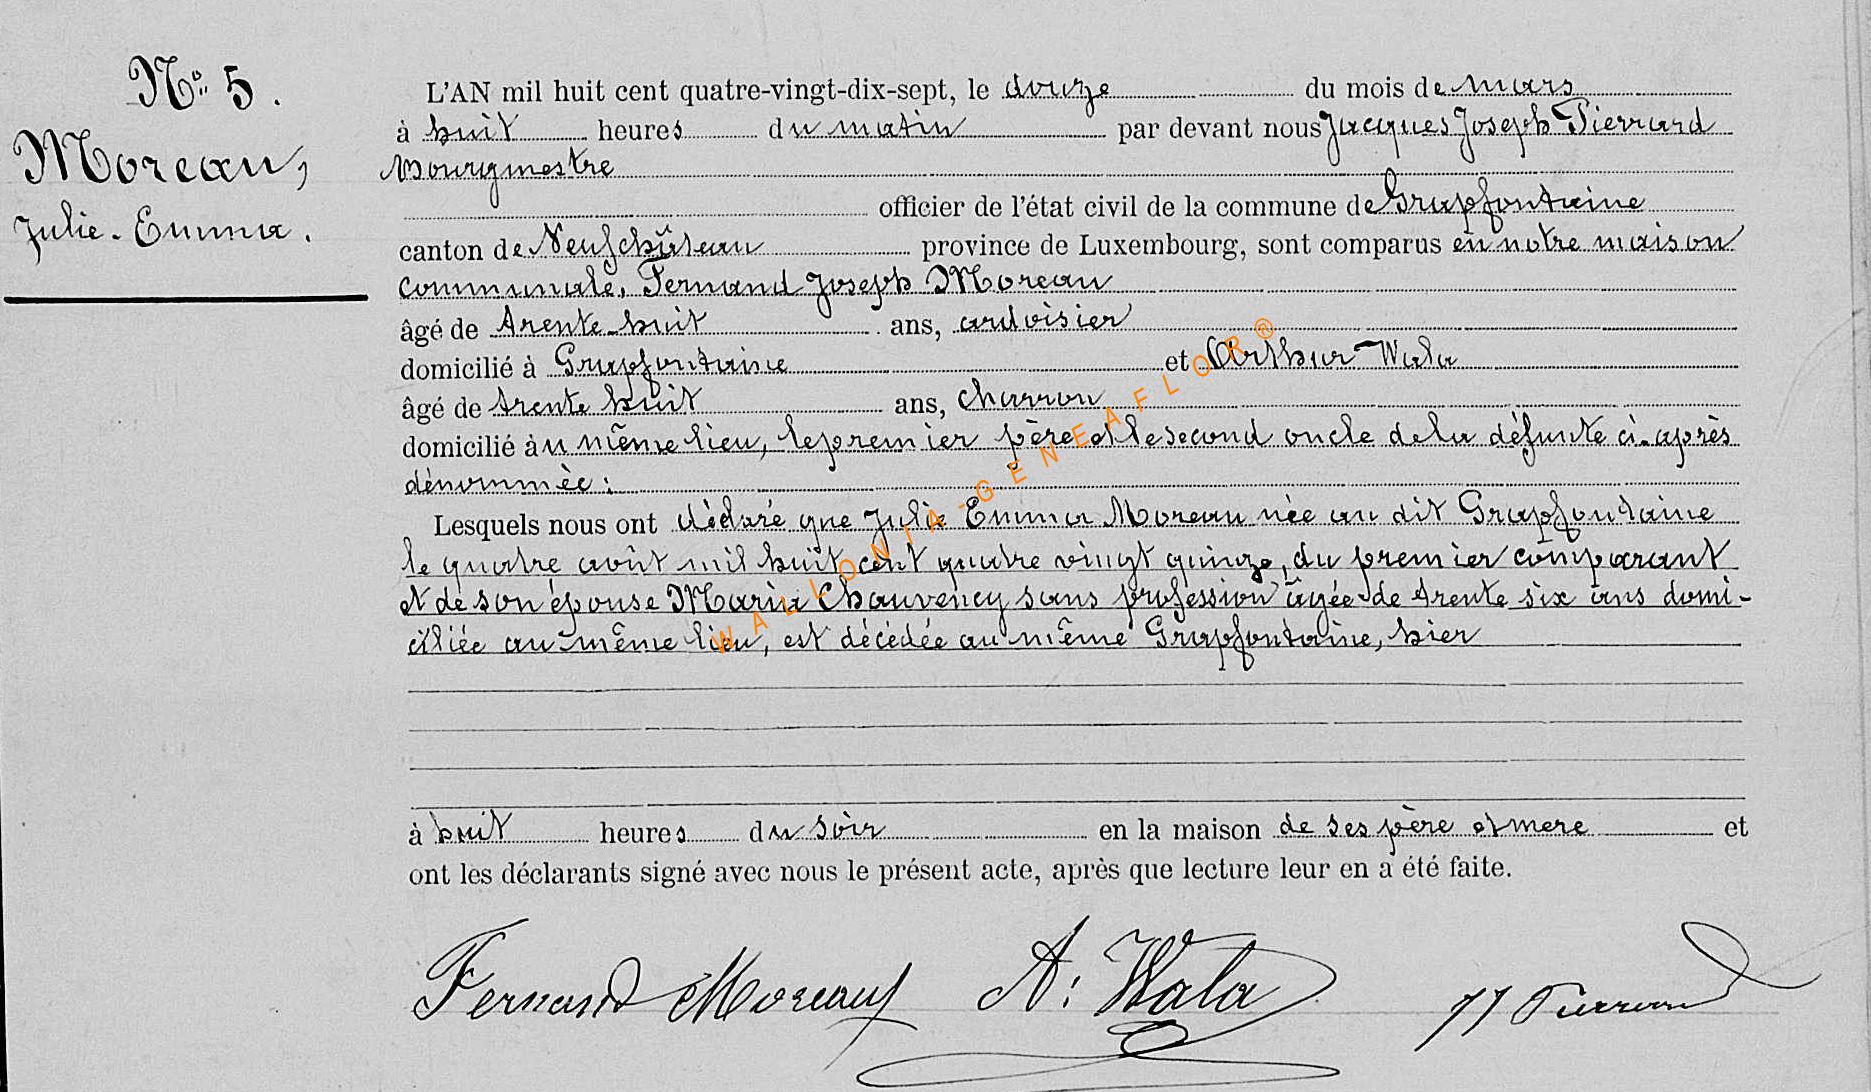 N° 5.
Moreau,
Julie-Emma.
L'AN mil huit cent quatre-vingt-dix-sept, le douze du mois de mars
à huit heures du matin par devant nous Jacques Joseph Pierrard
Bourgmestre
officier de l'état civil de la commune de Grapfontaine
canton de Neufchâteau province de Luxembourg, sont comparus en notre maison
communale, Fernand Joseph Moreau
âgé de trente-huit ans, ardoisier
domicilié à Grapfontaine et Arthur Wala
âgé de trente huit ans, charron
domicilié au même lieu, le premier père et le second oncle de la défunte ci-après
dénommée:
Lesquels nous ont déclaré que Julie Emma Moreau née au dit Grapfontaine
le quatre août mil huit cent quatre vingt quinze, du premier comparant
et de son épouse Maria Chauvency sans profession âgée de trente six ans domi-
ciliée au même lieu, est décédée au même Grapfontaine, hier
à huit heures du soir en la maison de ses père et mere et
ont les déclarants signé avec nous le présent acte, après que lecture leur en a été faite.
Fernand Moreau A: Wala JJ Pierrard
WALLONIA-GENEAFLOR®